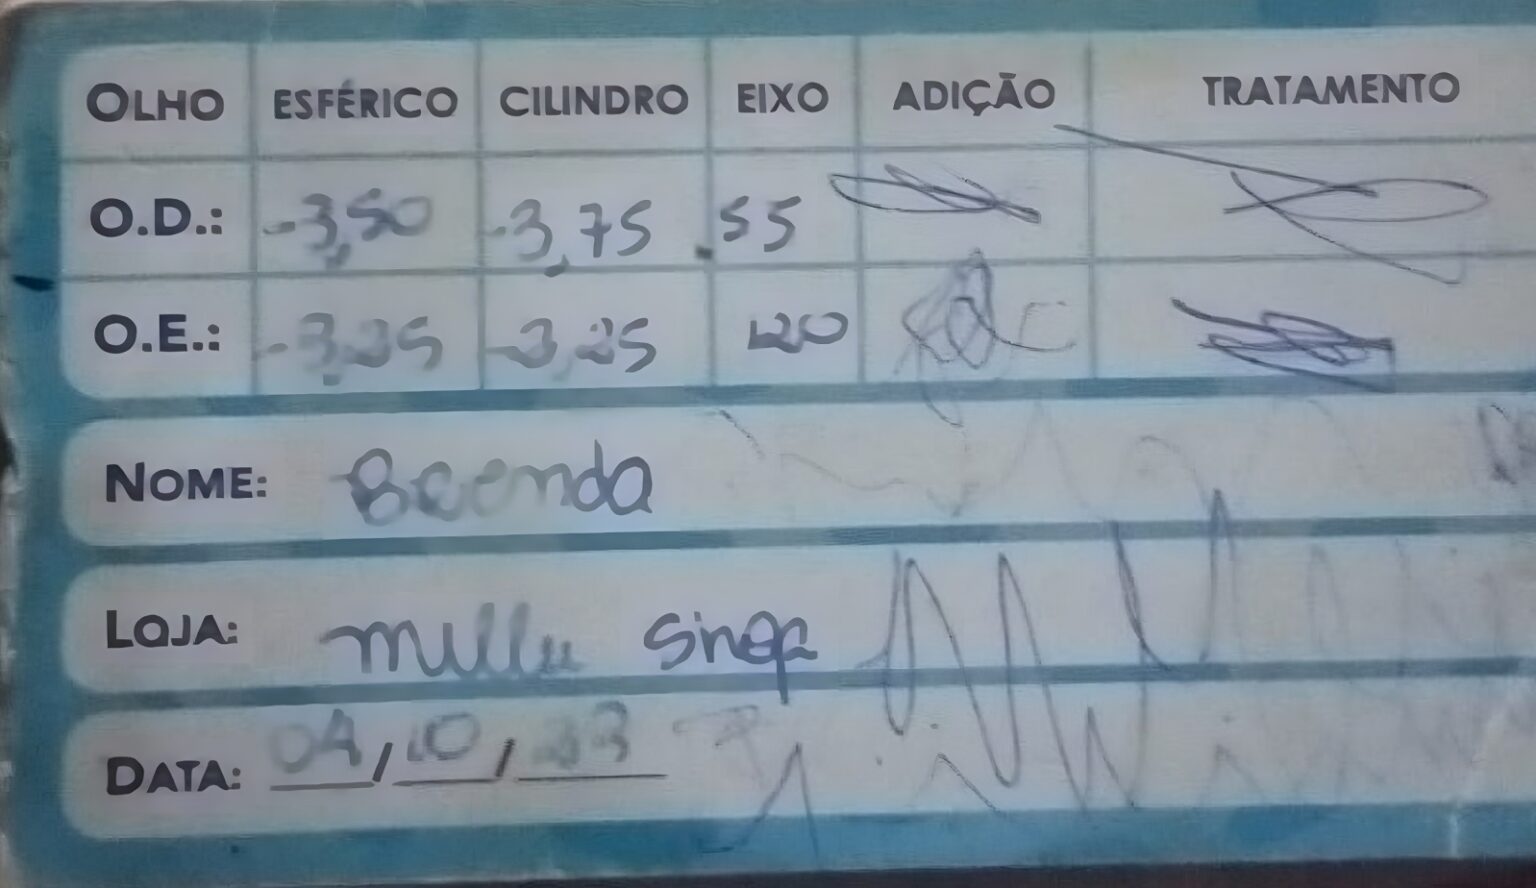 OLHO ESFÉRICO CILINDRO EIXO ADIÇÃO TRATAMENTO
O.D.: -3,50 -3,75 55
O.E.: -3,25 -3,25 120
NOME: Brenda
LOJA: millu
DATA: 04/10/23